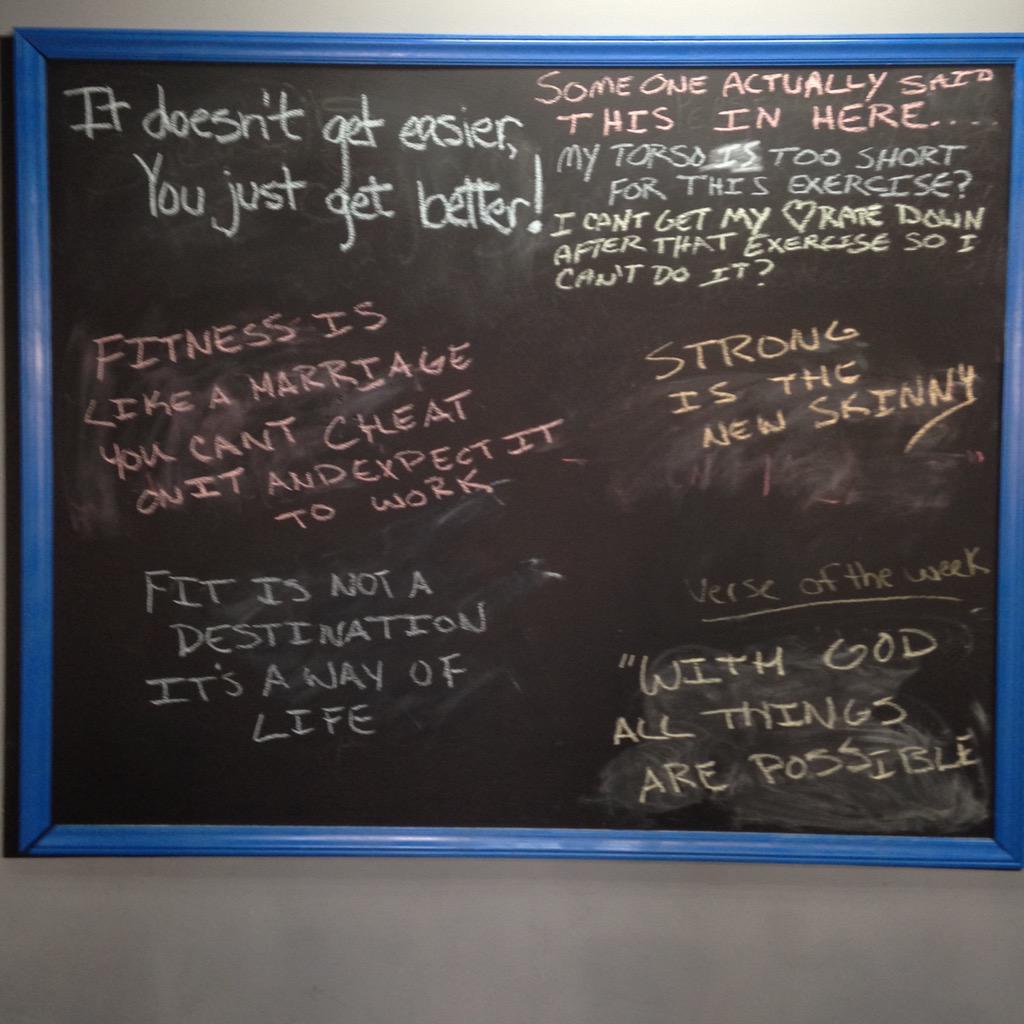 It doesn't get easier,
You just get better!
SOME ONE ACTUALLY SAID
THIS IN HERE....
MY TORSO IS TOO SHORT
FOR THIS EXERCISE?
I CANT GET MY ♡RATE DOWN
AFTER THAT EXERCISE SO I
CAN'T DO IT?
FITNESS IS
LIKE A MARRIAGE
YOU CANT CHEAT
ON IT AND EXPECT IT
TO WORK
STRONG
IS THE
NEW SKINNY
FIT IS NOT A
DESTINATION
IT'S A WAY OF
LIFE
Verse of the week
"WITH GOD
ALL THINGS
ARE POSSIBLE